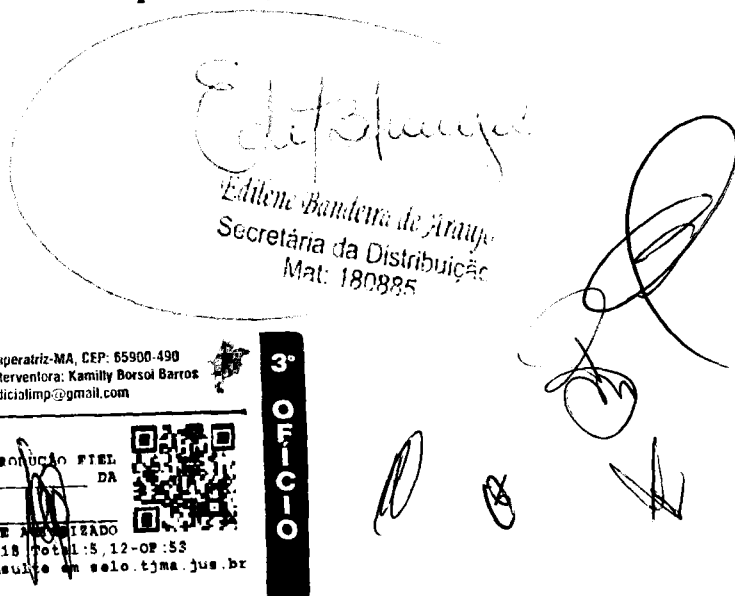 Edilene Bandeira de Araujo
Secretária da Distribuição
Mat: 180885
peratriz-MA, CEP: 65900-490
terventora: Kamilly Borsoi Barros
dicialimp@gmail.com
3º OFÍCIO
RODUÇÃO FIEL
DA
E
IZADO
18 Total:5,12-OP:53
nsulte em selo.tjma.jus.br